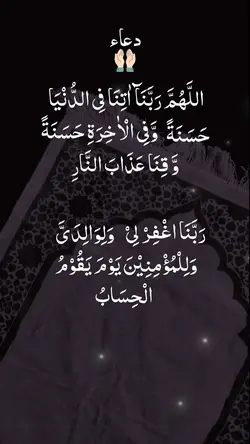 دعاء
🤲🏻
اللَّهُمَّ رَبَّنَآ اٰتِنَا فِي الدُّنْيَا
حَسَنَةً وَّفِي الْاٰخِرَةِ حَسَنَةً
وَّقِنَا عَذَابَ النَّارِ
رَبَّنَا اغْفِرْ لِيْ وَلِوَالِدَيَّ
وَلِلْمُؤْمِنِيْنَ يَوْمَ يَقُوْمُ
الْحِسَابُ